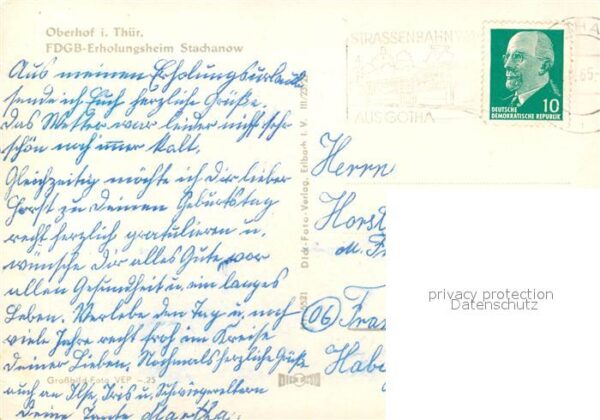 Oberhof i. Thür.
FDGB-Erholungsheim Stachanow
Aus meinem Erholungsurlaub
sende ich Euch herzliche Grüße.
Das Wetter war leider nicht sehr
schön noch immer kalt.
Gleichzeitig möchte ich Dir lieber
Horst zu Deinem Geburtstag
recht herzlich gratulieren u.
wünsche Dir alles Gute vor
allen Gesundheit u. ein langes
Leben. Verlebe den Tag u. noch
viele Jahre recht froh im Kreise
Deiner Lieben. Nochmals herzliche Grüße
auch an Ilse, Iris u. Schwiegereltern
Deine Tante Martha.
Großbild-Foto VEP -.25
Dick-Foto-Verlag, Erlbach i. V.
STRASSENBAHN
AUS GOTHA
DEUTSCHE
DEMOKRATISCHE REPUBLIK
10
65
Herrn
Horst
(06)
privacy protection
Datenschutz